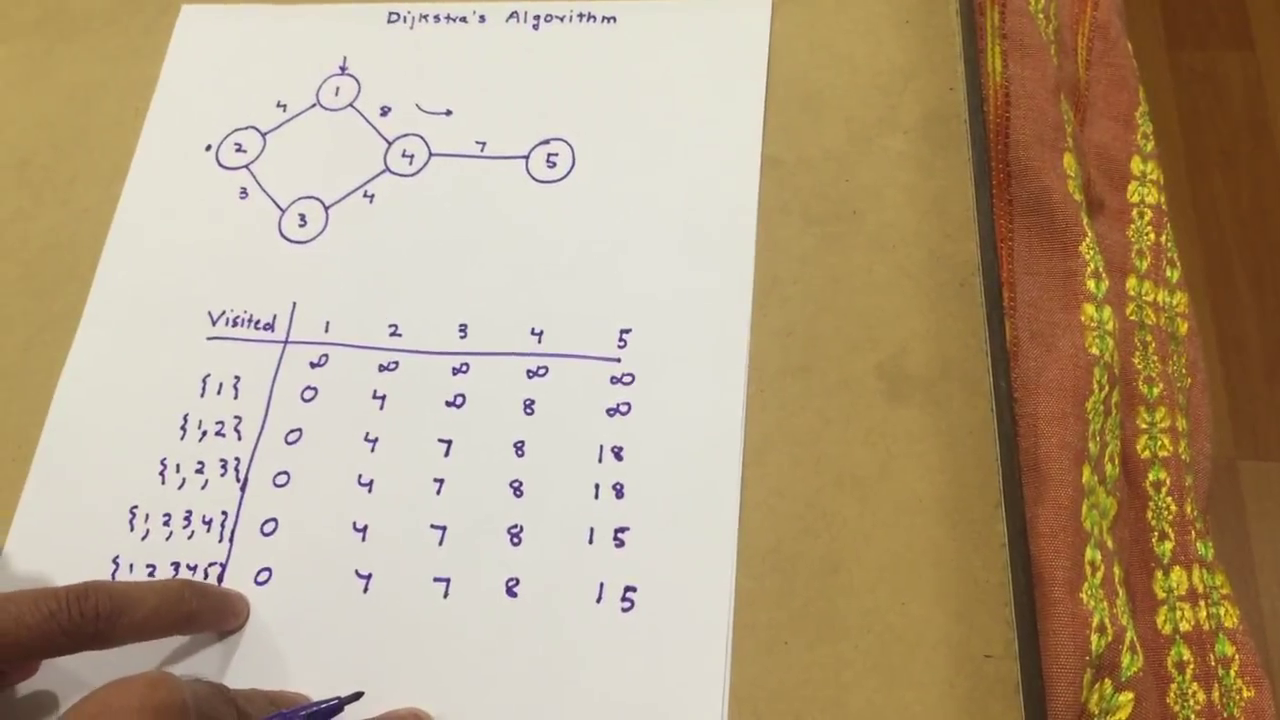 Dijkstra's Algorithm
1
4 8
2 4 7 5
3 4
3
Visited 1 2 3 4 5
∞ ∞ ∞ ∞ ∞
{1} 0 4 ∞ 8 ∞
{1,2} 0 4 7 8 18
{1,2,3} 0 4 7 8 18
{1,2,3,4} 0 4 7 8 15
{1 2 3 4 5} 0 4 7 8 15